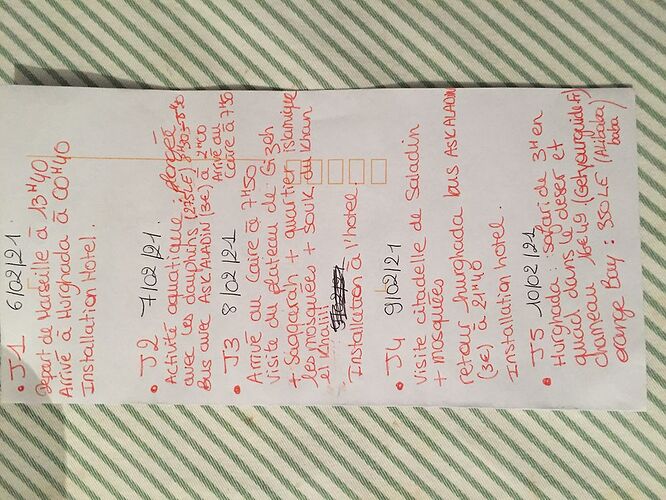 • J1 6/02/21
Départ de Marseille à 13H40
Arrivé à Hurghada à 00H40
Installation Hotel.
• J2 7/02/21
Activité aquatique : plongée
avec les dauphins (275LE) 8H30→
Bus avec ASK'ALADIN (3€) à
Arrivé au
Caire à 7H50
• J3 8/02/21
Arrivé au Caire à 7H50
visite du plateau de Gizeh
+ Saqqarah + quartier islamique
les mosquées + souk du Khan
el khalili
Installation à l'hotel.
• J4 9/02/21
visite citadelle de Saladin
+ mosquées
retour hurghada bus ASK'ALADIN
(3€) à 21H40
Installation hotel.
• J5 10/02/21
Hurghada: safari de 3H en
quad dans le déser et
chameau (Getyourguide.Fr)
orange Bay : 350 LE (Alibaby
baba)